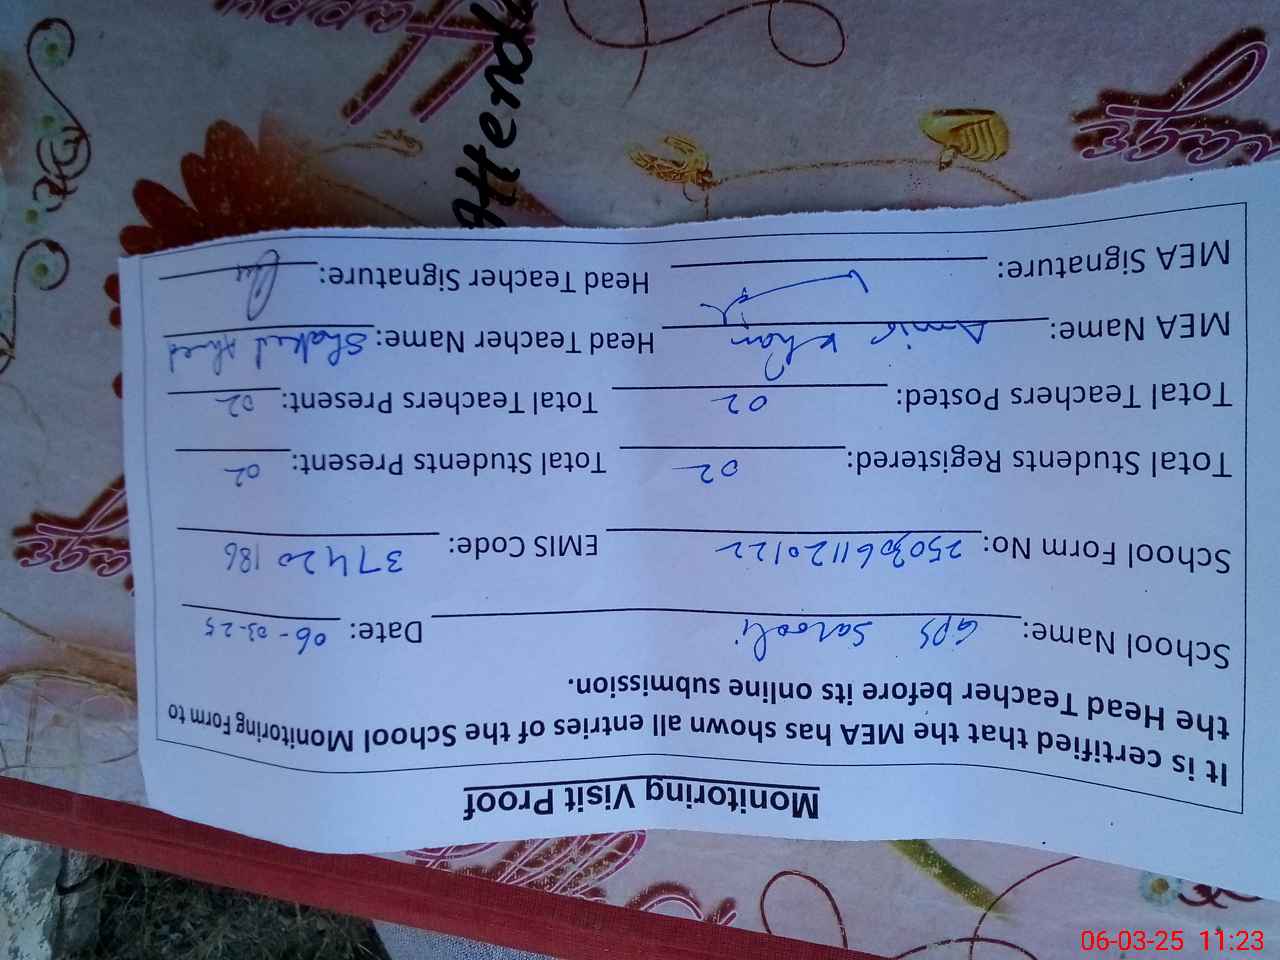 Monitoring Visit Proof
It is certified that the MEA has shown all entries of the School Monitoring Form to
the Head Teacher before its online submission.
School Name: GPS Sarooli Date: 06-03-25
School Form No: EMIS Code: 37420186
Total Students Registered: 02 Total Students Present: 02
Total Teachers Posted: 02 Total Teachers Present: 02
MEA Name: Amir Khan Head Teacher Name: Ahmed
MEA Signature: Head Teacher Signature:
Happy
06-03-25 11:23